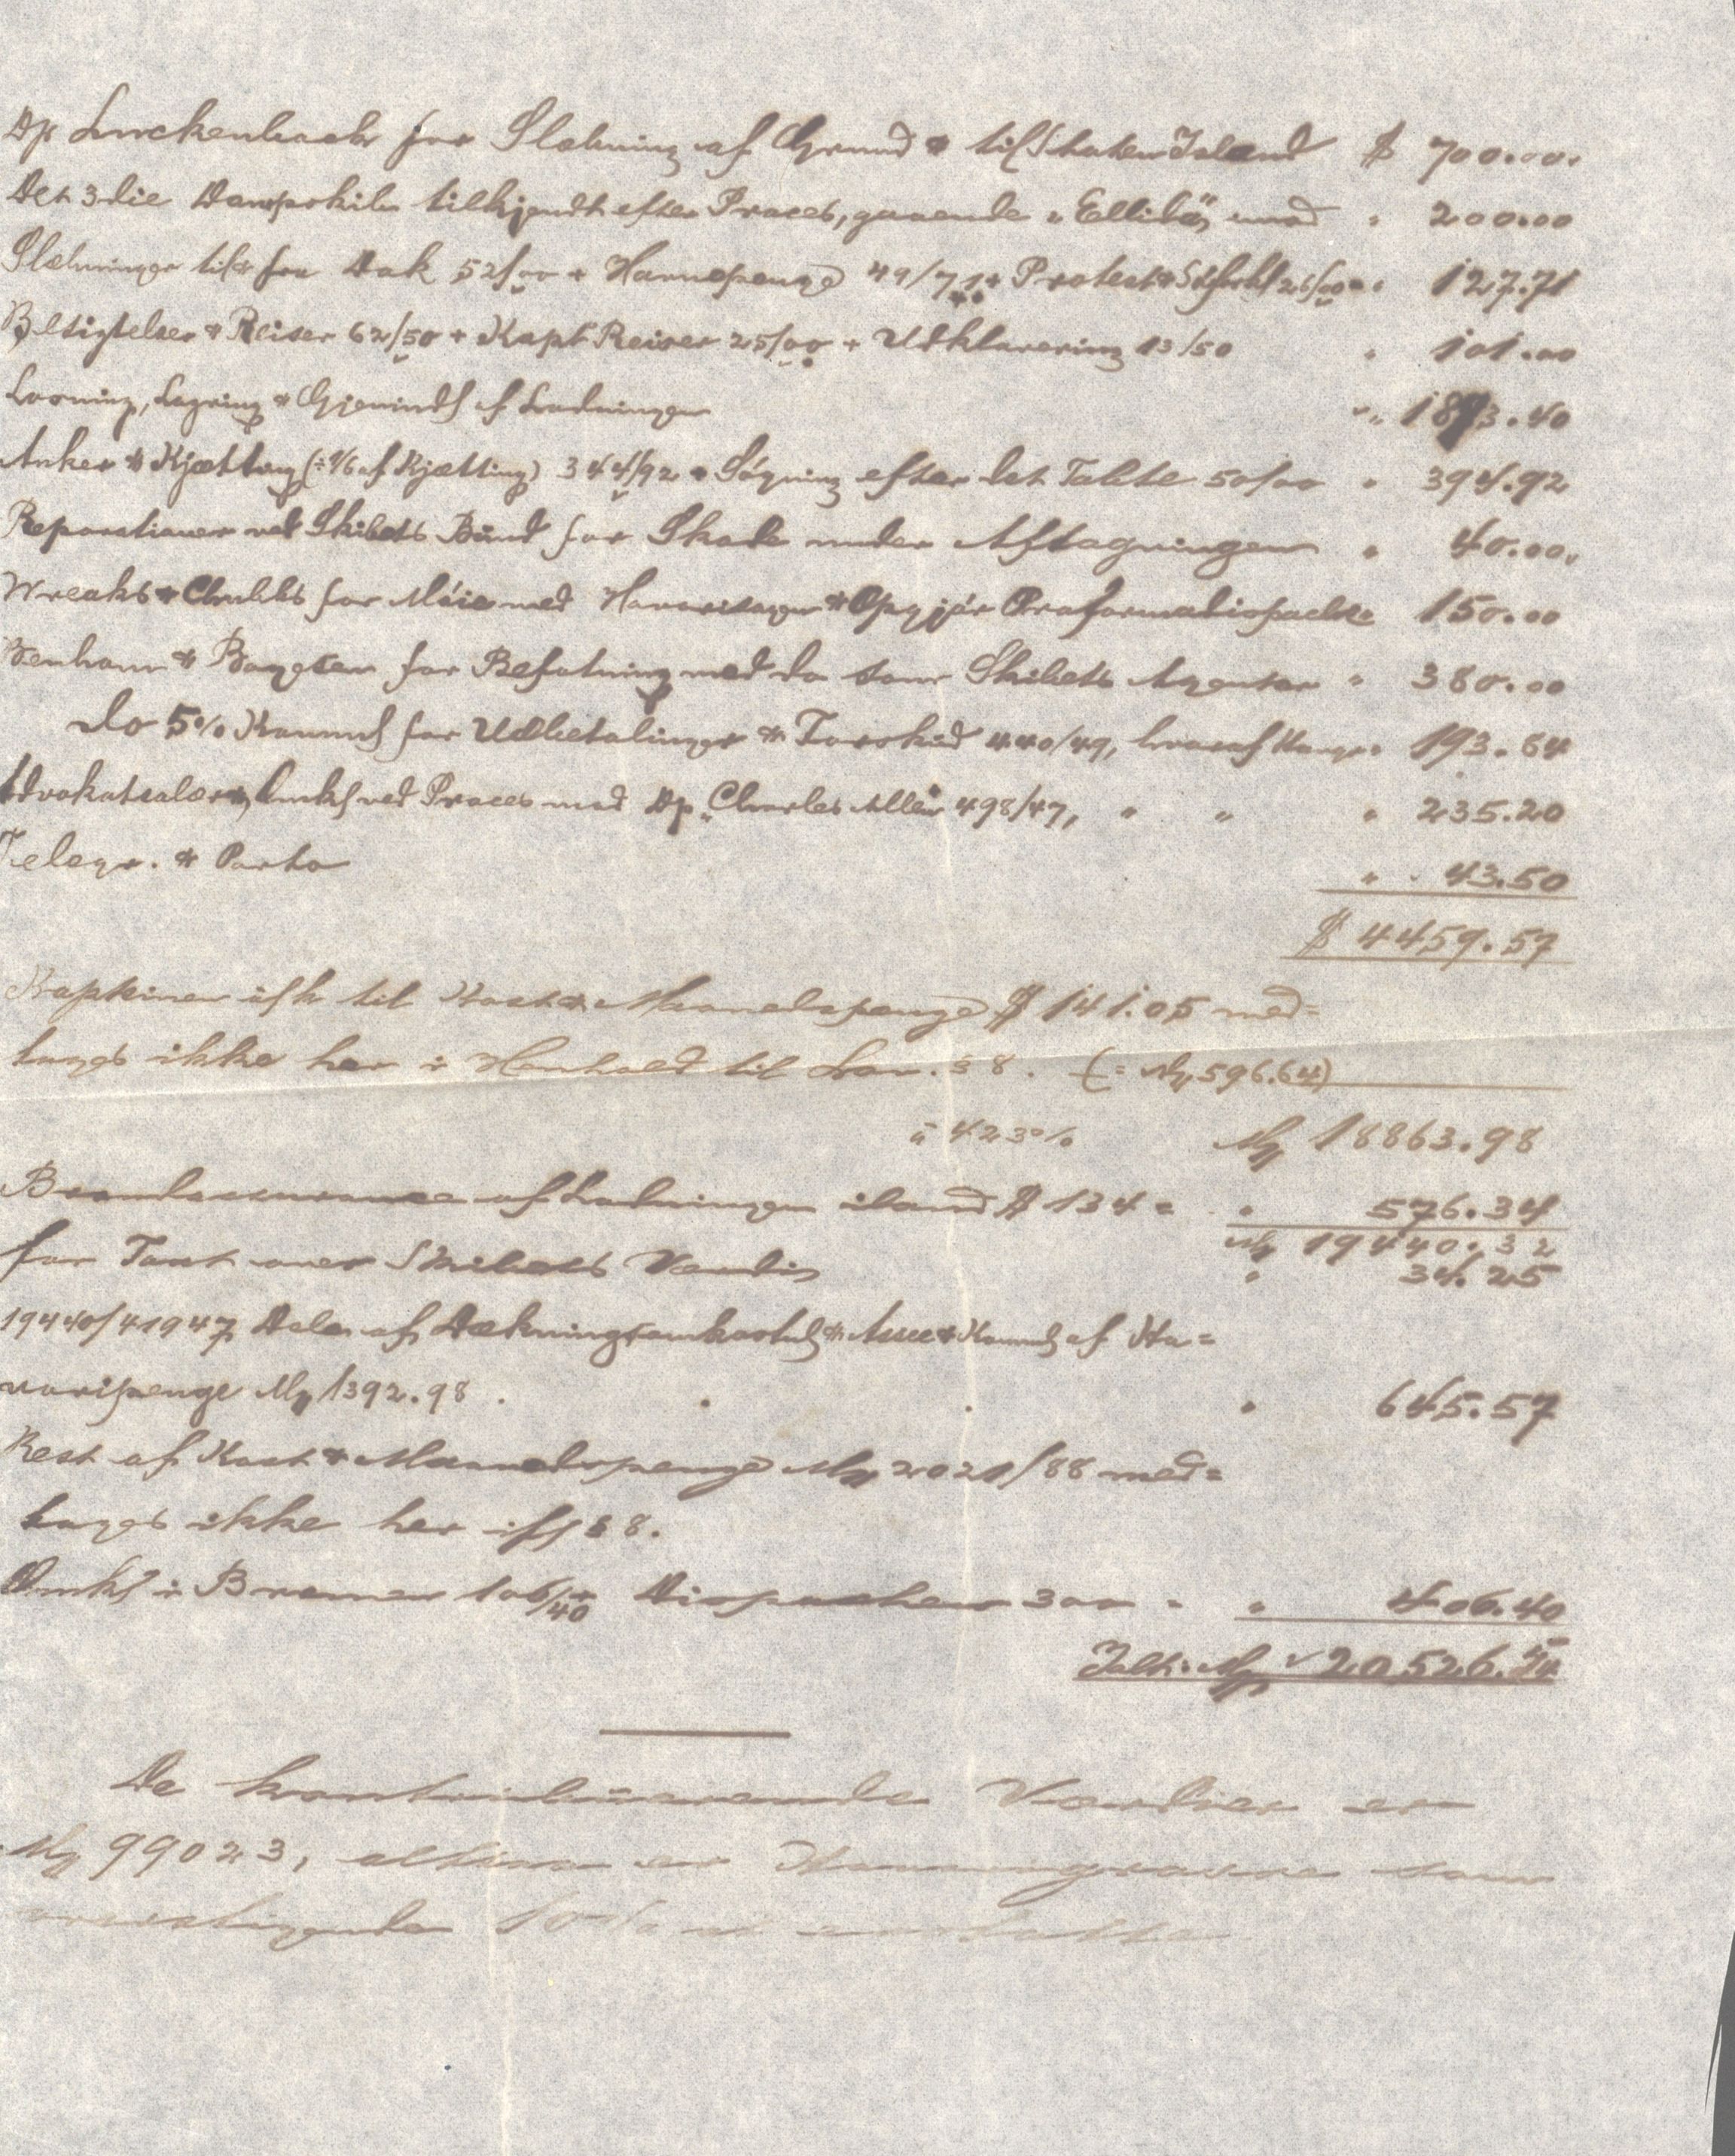 Dp Luckenbach for Slæbning af Grund & til Staten Island $ 700.00.
Det 3die Dampskib tilkjendt efter Proces, gaaende "Ellida" imod " 200.00
Slæbninger til & fra Dok 52/00 + Havnepenge 49/71 + Protest & 26/00 = " 127.71
Besigtelser & Reiser 62/50 + Kapt Reiser 25/00 + Udklarering 13/50 " 101.00
Losning, Lagring & Gjenindl af Ladningen " 1893.40
Anker & Kjætting (÷ 1/6 af Kjætting) 344/92 & Søgning efter det Tabte 50/00 " 394.92
Reparationer ved Skibets Bund for Skade under Aftagningen " 40.00.
Wreaks & Chubbs for Møie med Havarisager & Opgjør Proformadispache 150.00
Benham & Boyesen for Befatning med do som Skibets Agenter " 380.00
do 5% Kommis for Udbetalinger & Forskud 440/49, hvoraf " 193.64
Advokatsalær & Omk ved Proces mod Dp "Charles Allen" 498/47, " " " 235.20
Telegr. & Porto " 43.50
$ 4459.57
Kaptinen til Kost & Maanedspenge $ 141.05 med=
tages ikke her i Henhold til Lov. § 8. (= Mk 596.64)
à 423% Mk 18863.98
Brandassurance af Ladningen iland $ 134 = " 576.34
Mk 19440.32
for Taxt over Skibets Værdi " 34.25
19440/41947 Dele af Dækningsomkost & Assce & Komms af Ha=
varipenge Mk 1392.98. " 645.57
Rest af Kost & Maanedspenge Mk 2021/88 med=
tages ikke her § 8.
Omk i Bremen 106/40 Dispachen 300 - " 406.40
Ialt: Mk 20526.54
De kontribuerende Værdier er
Mk 99023, altsaa er som
overstigende 10%